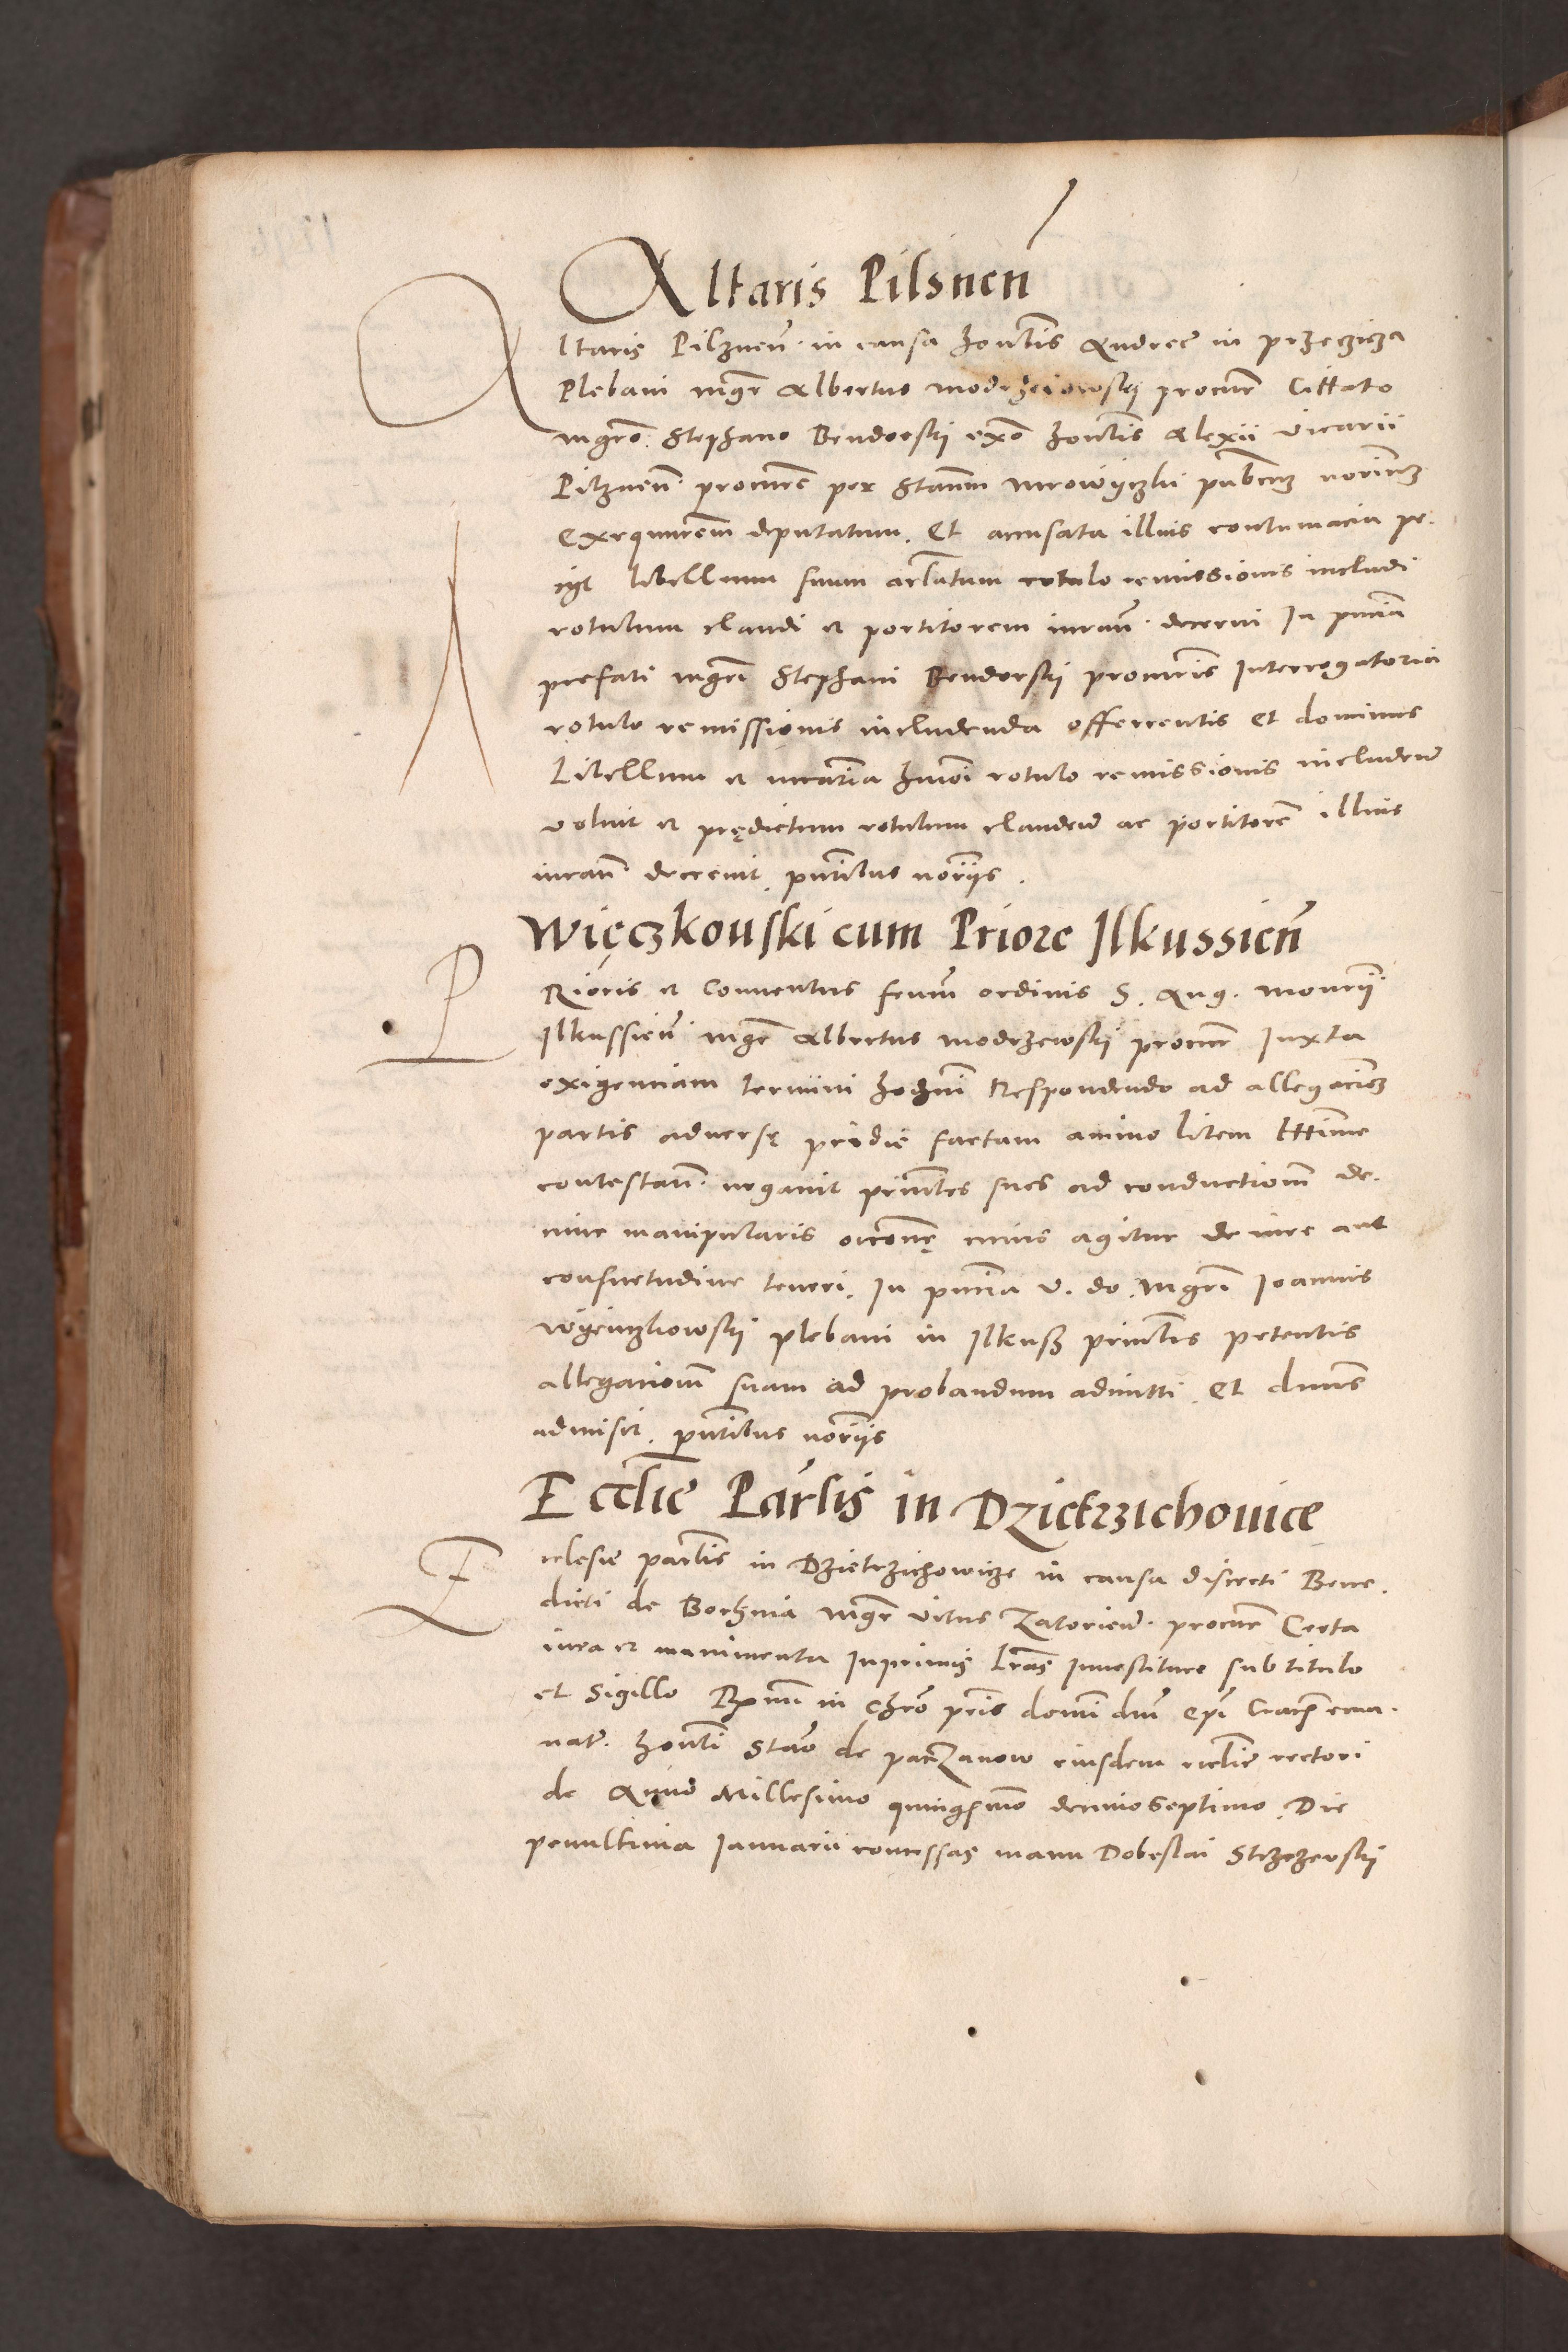 Altaris Pilsnen̄
Altaris Pilznen̄. in causa honēlis Andree in przeczicza
Plebani mgr̄ Albertus modrzeiowsky procur̄ Cittato
mgrō Stephano Bendorsky exō honēlis Alexii vicarii
Pilznen̄. procurē per Stanm̄ mrowyczki pub̄cuz norium
Exequutorem deputatum. Et accusata illius contumacia pe-
ijt libellum suum artlatum rotulo remissionis includi
rotulum claudi et portitorem iuran̄. decerni In pn̄cia
prefati mgrī Stephani Bendorsky procuris Interrogatoria
rotulo remissionis includenda offerentis Et dominus
Libellum et inratoria hmoī rotulo remissionis includen̄
voluit et prędictum rotulum clauden̄ ac portitorē illius
iuran̄ decrevit. pn̄tibus norijs.
Więczkouski cum Priore Ilkussien̄
PRioris et Conventus frum̄ ordinis S. Aug. monrij
Ilkussien̄ mgr̄ Albertus modrzewsky procur̄ Iuxta
exigenciam termini hodrni Respondendo ad allegaciōz
partis adversę pridie factam animo litem Ittime
contestan̄. negavit prin̄les suos ad conductionm̄ de-
cime manipularis occōne cuius agitur de iure aut
consuetudine teneri. In pn̄cia v. do. mgrī Ioannis
Wyenczkowsky plebani in Ilkusz prin̄lis petentis
allegationm̄ suam ad probandum admitti. Et dnus
admisit. pn̄tibus norijs
Ecclīe Parlis in Dzietrzichouice
Ecclesie parlis in Dzietrzichowicze in causa discreti Bene-
dicti de Bochnia mgr̄ vitus Zatorien̄. procur̄ Certa
iura et munimenta Inprimis Lrās Investiture sub titulo
et Sigillo Rn̄mi in Chrō pris domi dni epī Crac̄ ema-
nat̄. honli Stano de paczanow eiusdem ecclie rectori
de Anno Millesimo quingmo decimoseptimo Die
penultima Ianuarii concessas manu Dobeslai Strzezewsky